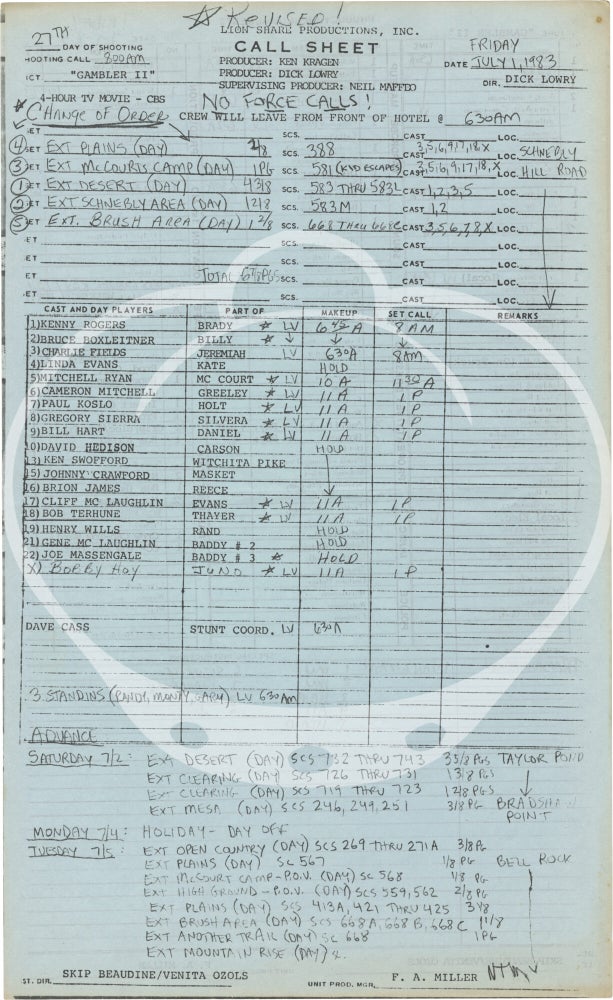 ☆ REVISED!
LION SHARE PRODUCTIONS, INC.
27TH DAY OF SHOOTING CALL SHEET FRIDAY
HOOTING CALL 800AM PRODUCER: KEN KRAGEN DATE JULY 1, 1983
ICT "GAMBLER II" PRODUCER: DICK LOWRY DIR. DICK LOWRY
SUPERVISING PRODUCER: NEIL MAFFEO
4-HOUR TV MOVIE - CBS NO FORCE CALLS!
* CHANGE OF ORDER CREW WILL LEAVE FROM FRONT OF HOTEL @ 630AM
ET SCS. CAST LOC.
④ ET EXT PLAINS (DAY) SCS. 388 CAST 3,5,6,9,17,18,X LOC. SCHNEBLY
③ ET EXT McCOURTS CAMP (DAY) 1PG SCS. 581 (KYD ESCAPES) CAST 3,5,6,9,17,18,X LOC. HILL ROAD
① ET EXT DESERT (DAY) 4 3/8 SCS. 583 THRU 583L CAST 1,2,3,5 LOC.
② ET EXT SCHNEBLY AREA (DAY) 1 2/8 SCS. 583M CAST 1,2 LOC.
⑤ ET EXT. BRUSH AREA (DAY) 1 2/8 SCS. 668 THRU 668C CAST 3,5,6,7,8,X LOC.
ET SCS. CAST LOC.
ET SCS. CAST LOC.
ET TOTAL PGS SCS. CAST LOC.
ET SCS. CAST LOC.
CAST AND DAY PLAYERS PART OF MAKEUP SET CALL REMARKS
1)KENNY ROGERS BRADY * LV 6 45 A 8 AM
2)BRUCE BOXLEITNER BILLY * ↓ ↓ ↓
3)CHARLIE FIELDS JEREMIAH LV 630A 8AM
4)LINDA EVANS KATE HOLD
5)MITCHELL RYAN MC COURT * LV 10 A 11 30 A
6)CAMERON MITCHELL GREELEY * LV 11 A 1 P
7)PAUL KOSLO HOLT * LV 11 A 1 P
8)GREGORY SIERRA SILVERA * LV 11 A 1 P
9)BILL HART DANIEL * LV 11 A 1 P
10)DAVID HEDISON CARSON HOLD
13)KEN SWOFFORD WITCHITA PIKE
15)JOHNNY CRAWFORD MASKET
16)BRION JAMES REECE ↓
17)CLIFF MC LAUGHLIN EVANS * LV 11 A 1 P
18)BOB TERHUNE THAYER * LV 11 A 1 P
19)HENRY WILLS RAND HOLD
21)GENE MC LAUGHLIN BADDY # 2 HOLD
22)JOE MASSENGALE BADDY # 3 * HOLD
X) BOBBY HOY JUNO * LV 11 A 1 P
DAVE CASS STUNT COORD. LV 630A
3 STANDINS (RANDY, MONTY, GARY) LV 630AM
ADVANCE
SATURDAY 7/2: EXT DESERT (DAY) SCS 732 THRU 743 3 5/8 PGS TAYLOR POND
EXT CLEARING (DAY) SCS 726 THRU 731 1 3/8 PGS
EXT CLEARING (DAY) SCS 719 THRU 723 1 2/8 PGS ↓
EXT MESA (DAY) SCS 246, 249, 251 3/8 PG BRADSHAW POINT
MONDAY 7/4: HOLIDAY - DAY OFF
TUESDAY 7/5: EXT OPEN COUNTRY (DAY) SCS 269 THRU 271A 3/8 PG
EXT PLAINS (DAY) SC 567 1/8 PG BELL ROCK
EXT McCOURT CAMP - P.O.V. (DAY) SC 568 1/8 PG
EXT HIGH GROUND - P.O.V. (DAY) SCS 559, 562 2/8 PG
EXT PLAINS (DAY) SCS 413A, 421 THRU 425 3 1/8
EXT BRUSH AREA (DAY) SCS 668A, 668B, 668C 1 1/8
EXT ANOTHER TRAIL (DAY) SC 668 1PG
EXT MOUNTAIN RISE (DAY)
ST. DIR. SKIP BEAUDINE/VENITA OZOLS UNIT PROD. MGR. F. A. MILLER